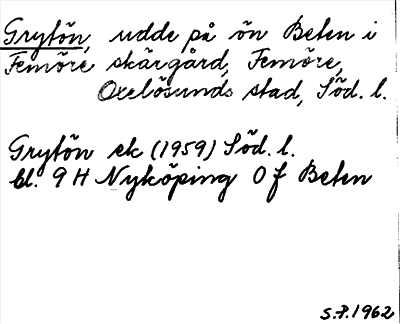 Grytön, udde på ön Beten i
Femöre skärgård, Femöre,
Oxelösunds stad, Söd. l.
Grytön ek (1959) Söd. l.
bl. 9 H Nyköping 0 f Beten
S.P. 1962